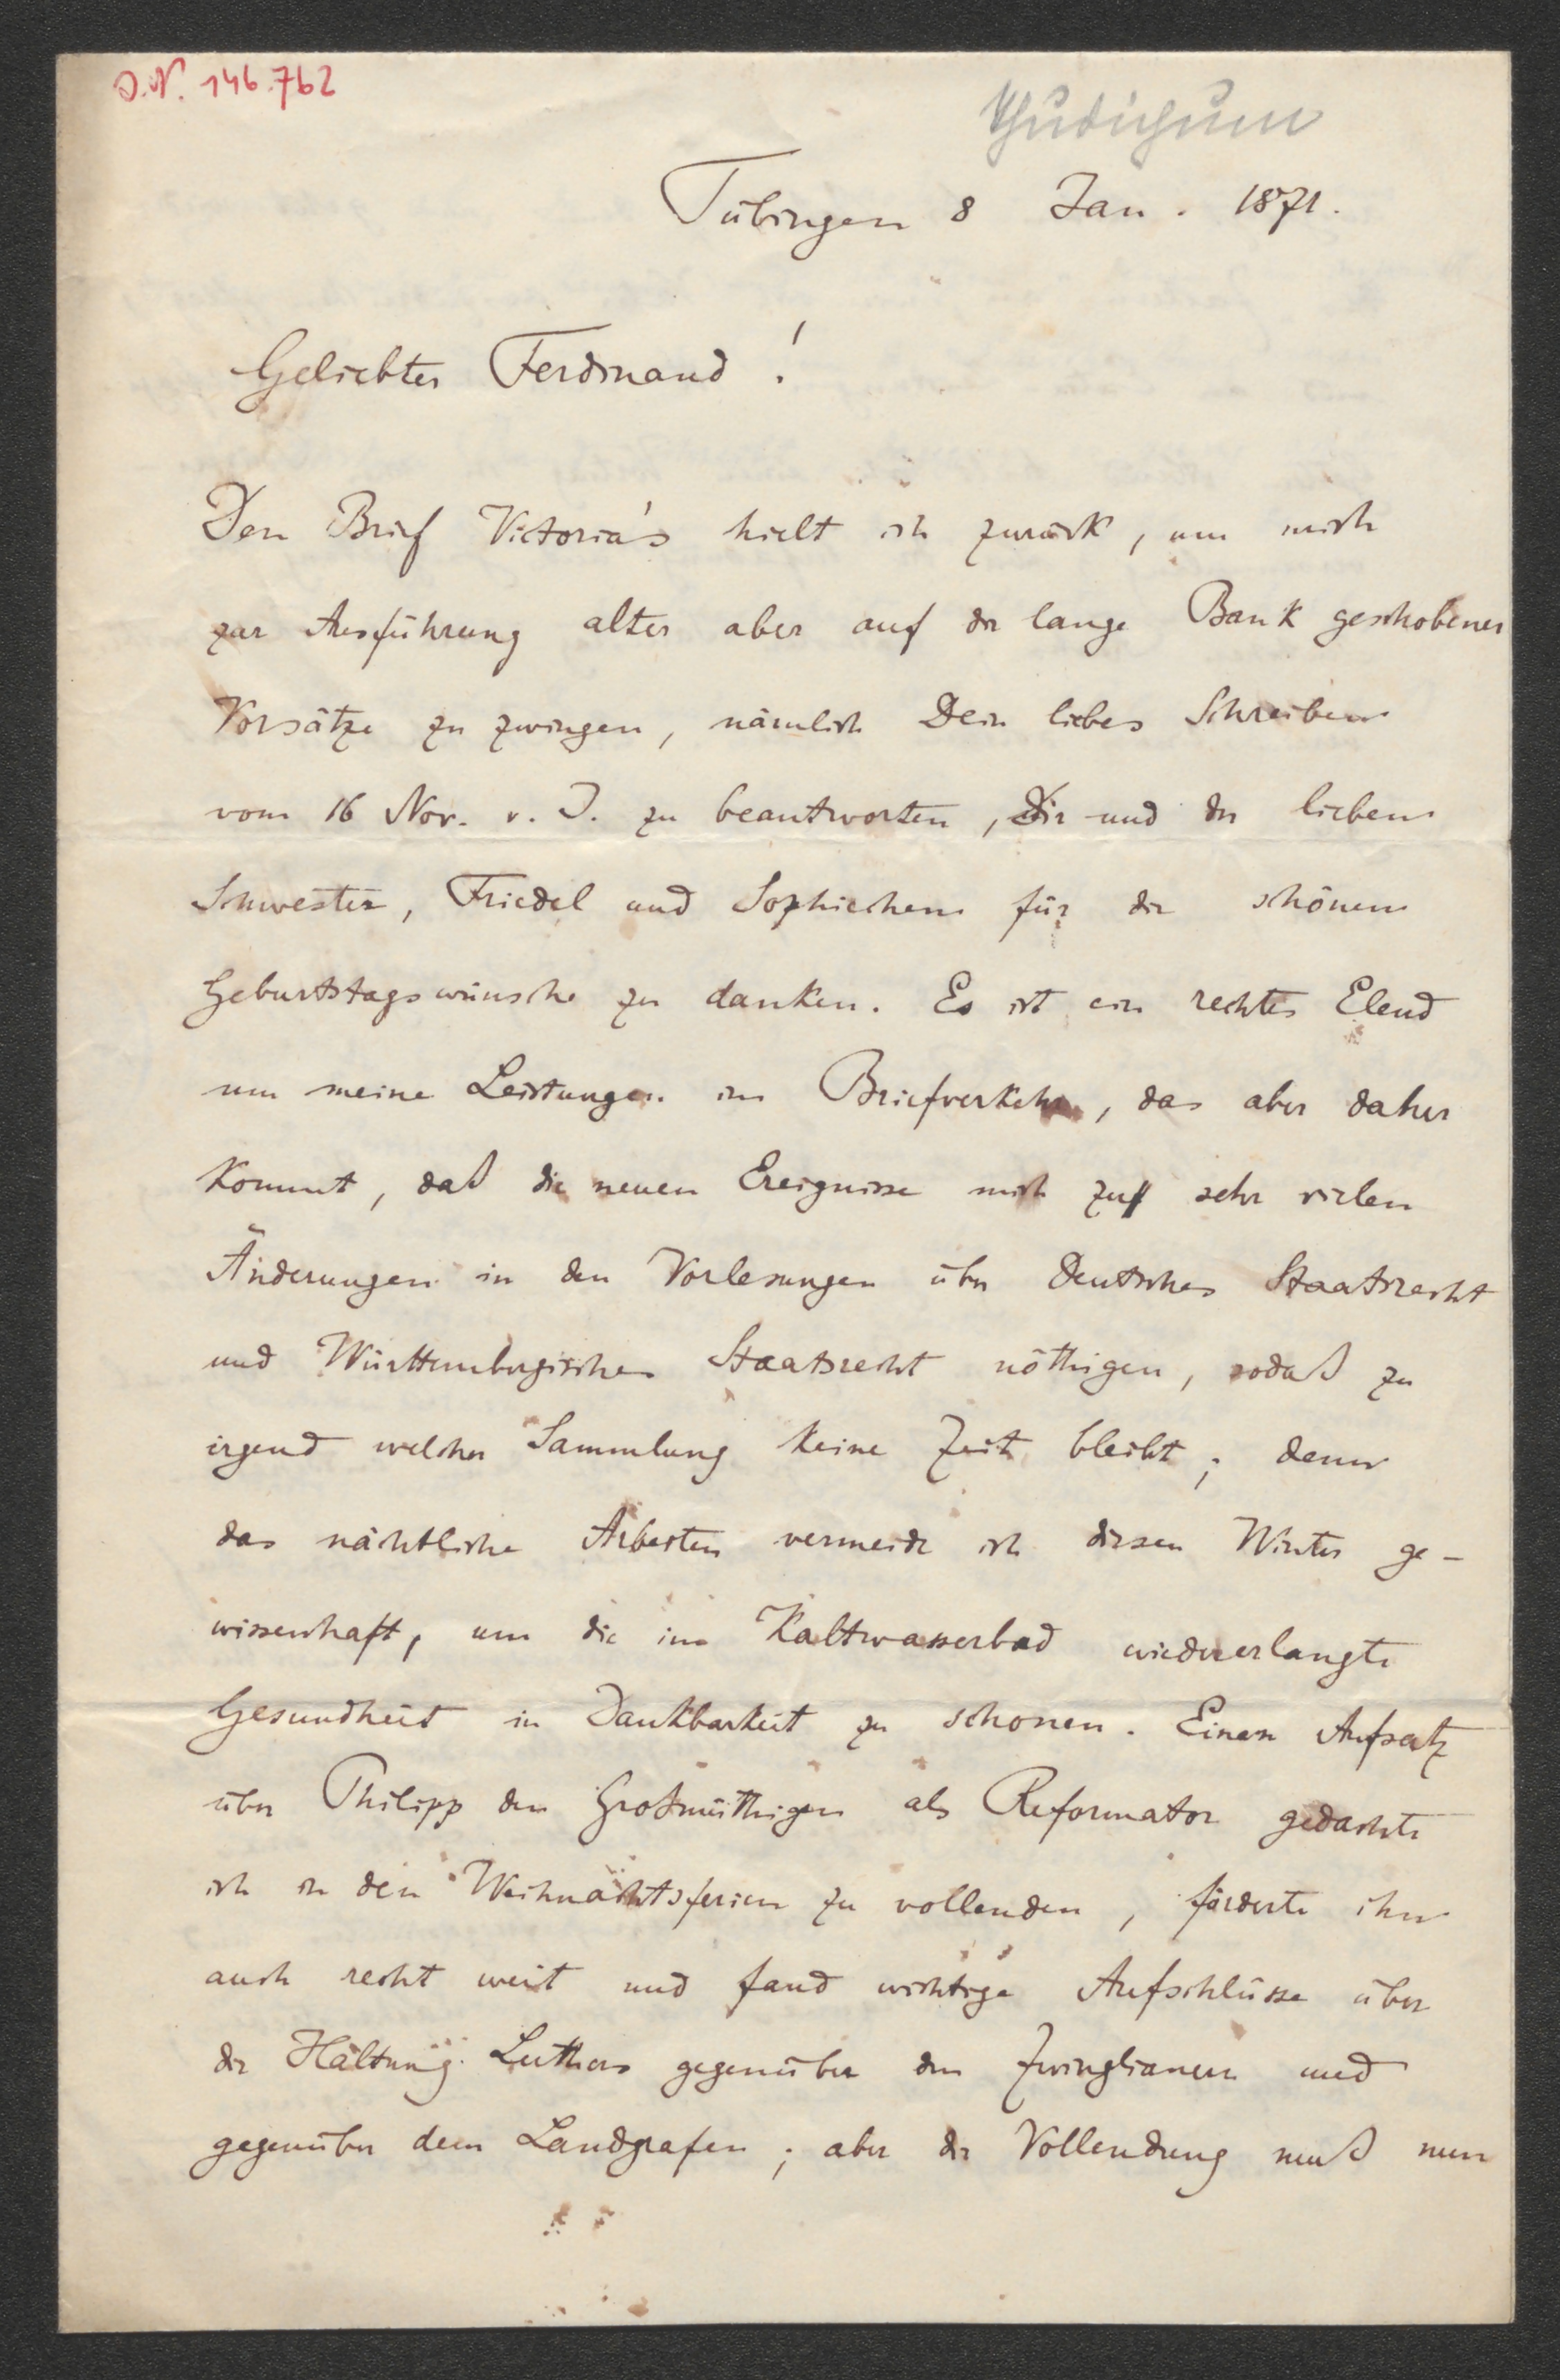 J.N. 146.762
Thudichum
Tübingen 8 Jan. 1871.
Geliebter Ferdinand!
Den Brief Victoria's hielt ich zurück, um mich
zur Ausführung alter aber auf die lange Bank geschobener
Vorsätze zu zwingen, nämlich Dein liebes Schreiben
vom 16 Nov. v. J. zu beantworten, Dir und der lieben
Schwester, Friedel und Sophiechen für die schönen
Geburtstagswünsche zu danken. Es ist ein rechtes Elend
um meine Leistungen im Briefverkehr, das aber daher
kommt, daß die neuen Ereignisse mich zu sehr vielen
Änderungen in den Vorlesungen über Deutsches Staatsrecht
und Württembergisches Staatsrecht nöthigen, sodaß zu
irgend welcher Sammlung keine Zeit bleibt; denn
das nächtliche Arbeiten vermeide ich diesen Winter ge-
wissenhaft, um die im Kaltwasserbad wiedererlangte
Gesundheit in Dankbarkeit zu schonen. Einen Aufsatz
über Philipp den Großmüthigen als Reformator gedachte
ich in den Weihnachtsferien zu vollenden, förderte ihn
auch recht weit und fand wichtige Aufschlüsse über
die Haltung Luthers gegenüber den Zwinglianern und
gegenüber dem Landgrafen; aber die Vollendung muß nun